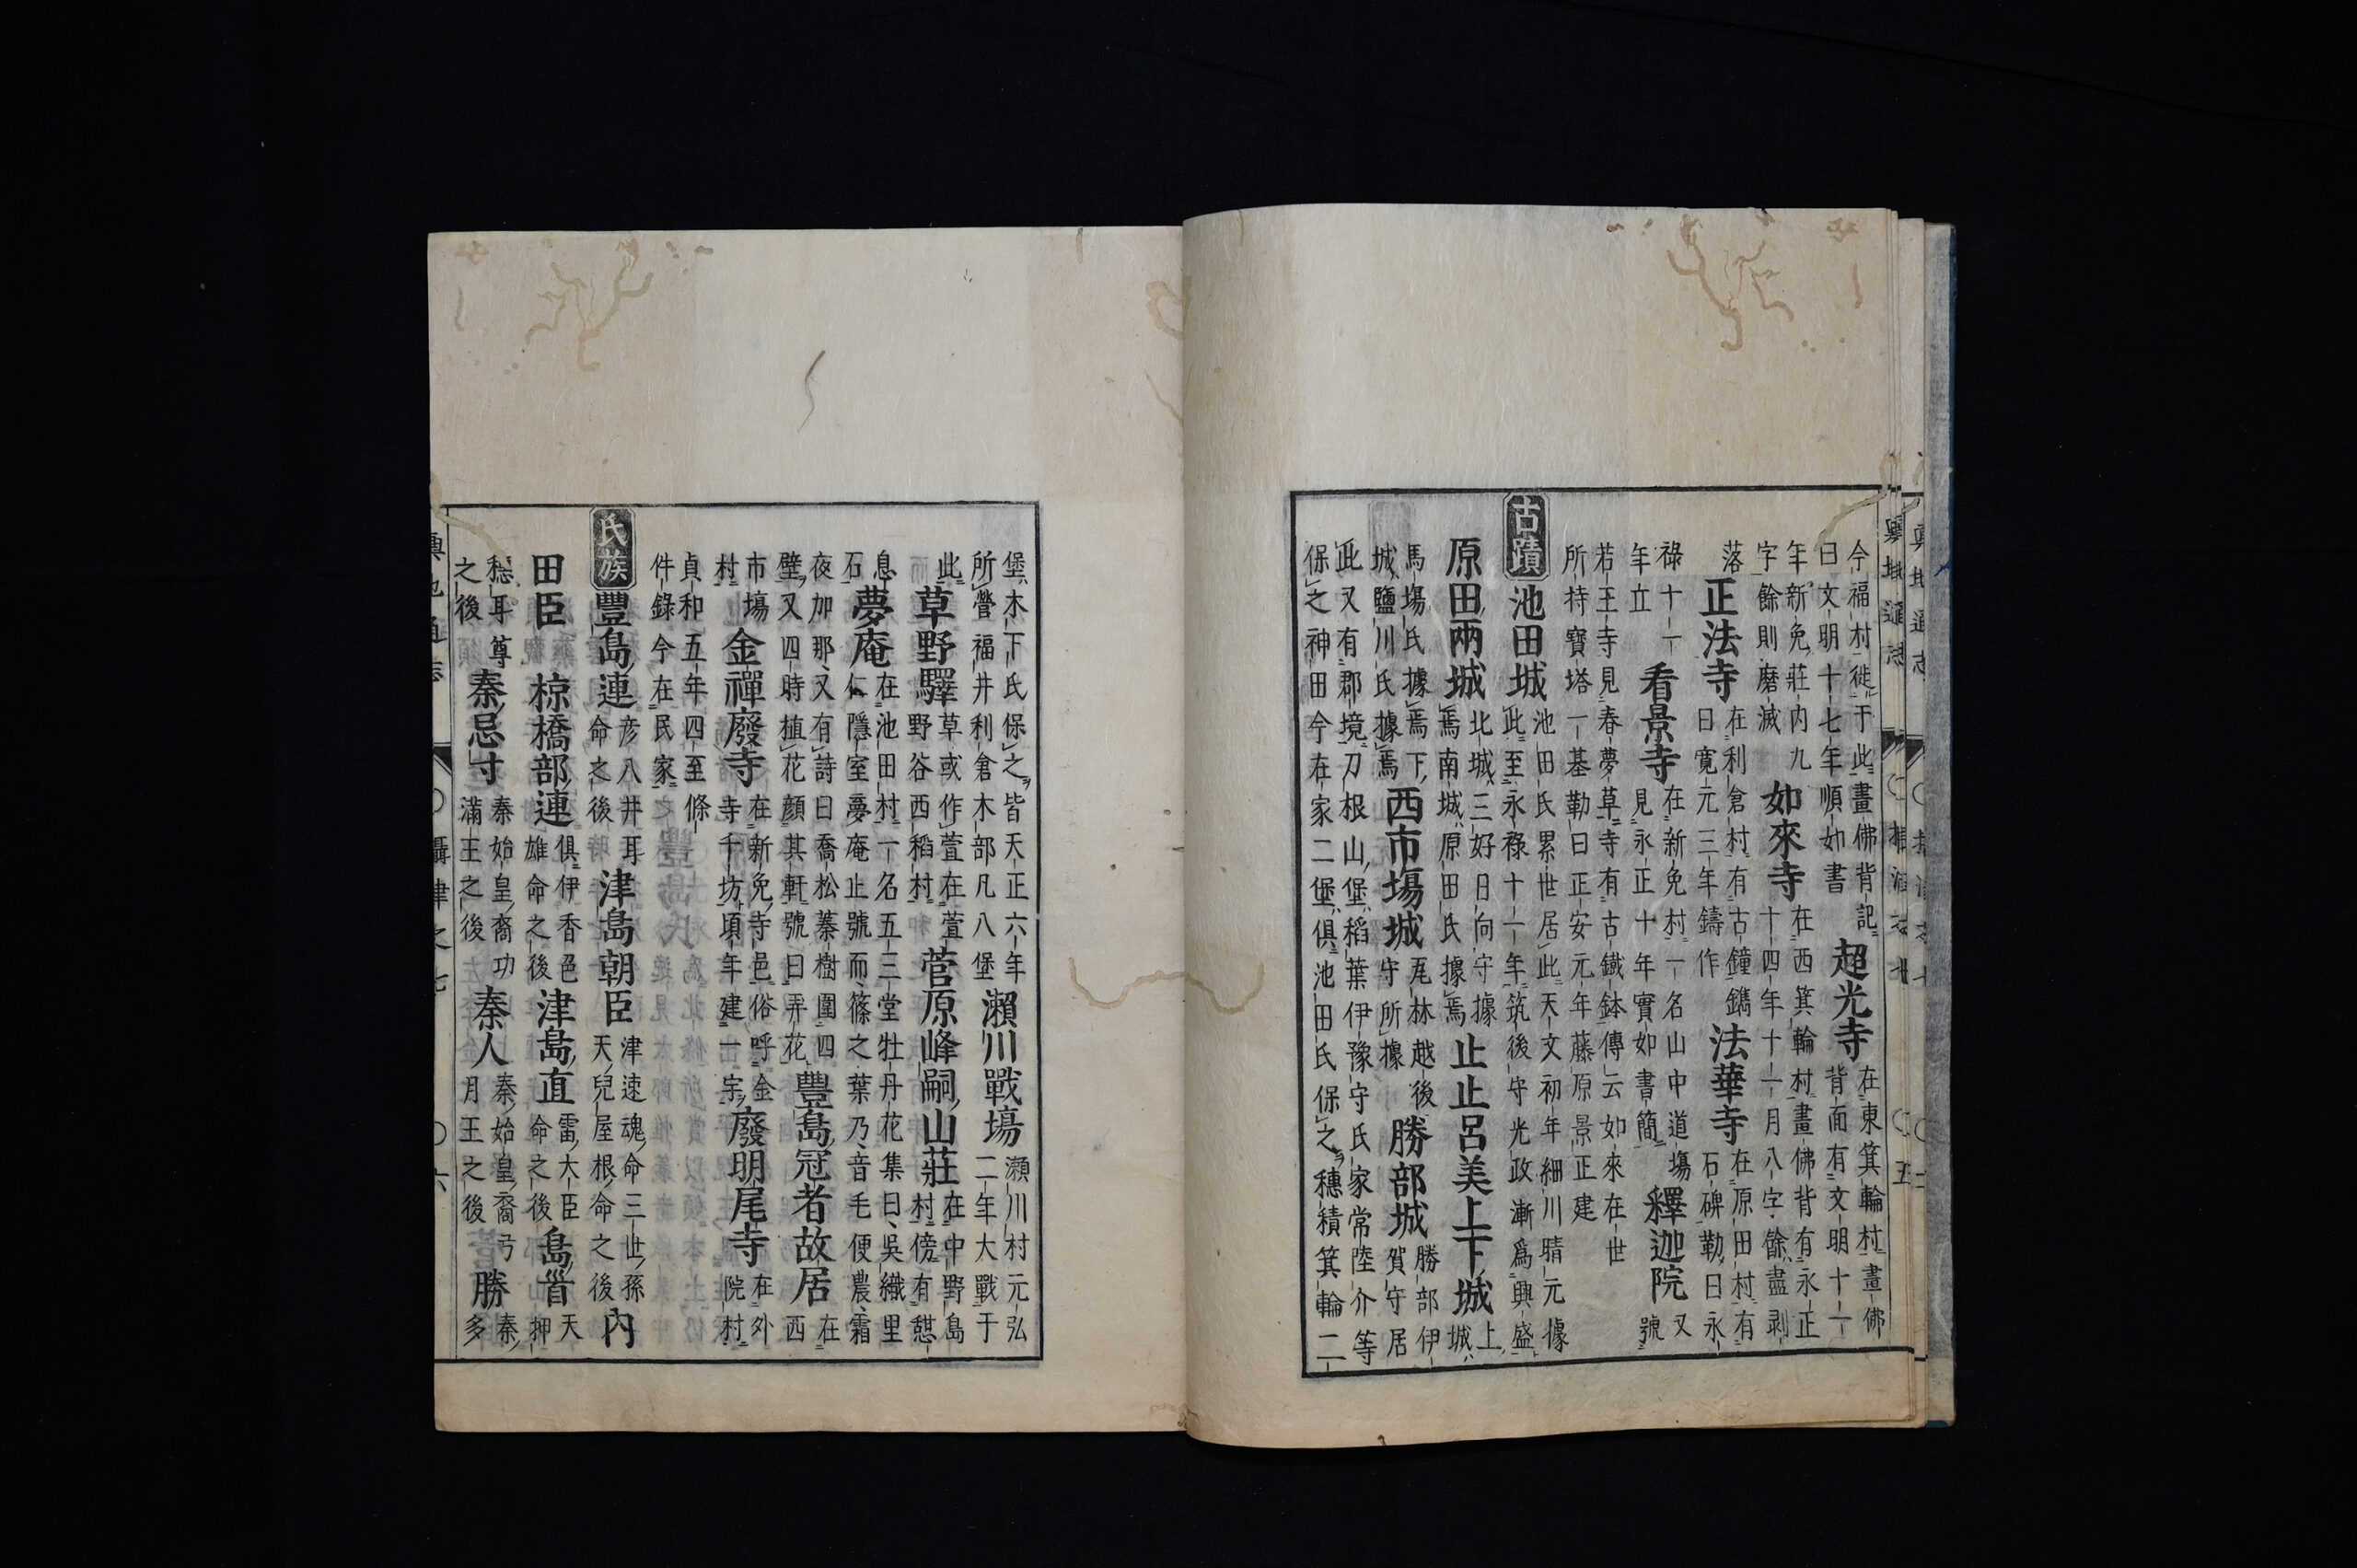 今福村徙于此畫佛背記
曰文明十七年順如書
超光寺
在東箕輪村畫佛
背面有文明十一
年新免莊内九
字餘則磨滅
如來寺
在西箕輪村畫佛背有永正
十四年十一月八字餘盡剥
落
正法寺
在利倉村有古鐘鐫
曰寛元三年鑄作
法華寺
在原田村有
石碑勒曰永
祿十一
年立
看景寺
在新免村一名山中道場
見永正十年實如書簡
釋迦院
又
號
若王寺見春夢草寺有古鐵鉢傳云如來在世
所持寶塔一基勒曰正安元年藤原景正建
古蹟
池田城
池田氏累世居此天文初年細川晴元據
此至永祿十一年筑後守光政漸爲興盛
原田兩城
北城三好日向守據
焉南城原田氏據焉
止止呂美上下城
上
城
馬場氏據焉下
城鹽川氏據焉
西市場城
瓦林越後
守所據
勝部城
勝部伊
賀守居
此又有郡境刀根山堡稻葉伊豫守氏家常陸介等
保之神田今在家二堡俱池田氏保之穗積箕輪二
堡木下氏保之皆天正六年
所營福井利倉木部凡八堡
瀬川戰場
瀬川村元弘
二年大戰于
此
草野驛
草或作萱在萱
野谷西稻村
菅原峰嗣山莊
在中野島
村傍有憩
息
石
夢庵
在池田村一名五三堂牡丹花集曰吳織里
仁隱室夢庵止號而篠之葉乃音毛便農霜
夜加那又有詩曰喬松蓁樹圍四
壁又四時植花顔其軒號曰弄花
豐島冠者故居
在
西
市塲
村
金禪廢寺
在新免寺邑俗呼金
寺千坊頃年建一宗
廢明尾寺
在外
院村
貞和五年四至條
件錄今在民家
氏族
豐島連
彦八井耳
命之後
津島朝臣
津速魂命三世孫
天兒屋根命之後
内
田臣
椋橋部連
俱伊香色
雄命之後
津島直
雷大臣
命之後
島首
天
押
穗耳尊
之後
秦忌寸
秦始皇裔功
滿王之後
秦人
秦始皇裔弓
月王之後
勝
秦
多
攝津之七
六